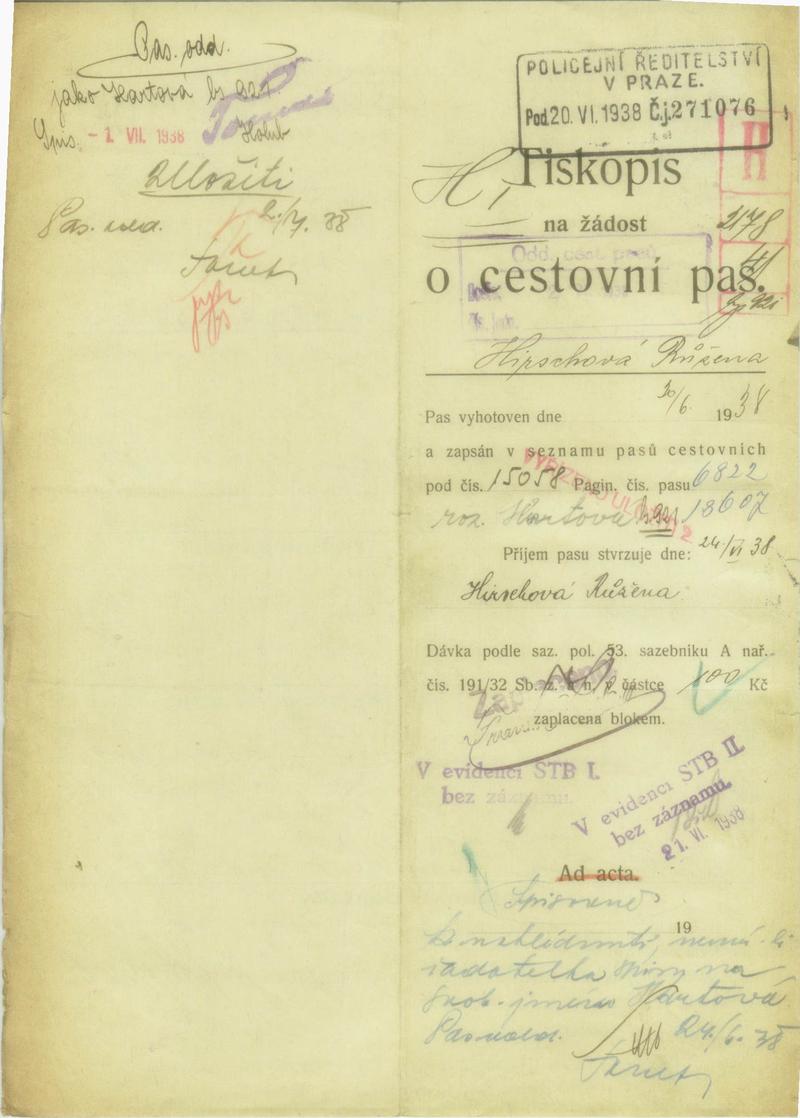 Pas. odd.
jako Hartová bs 921
Spis. - 1. VII. 1938 Holub
Uložiti
Pas. odd. 2./7. 38
POLICEJNÍ ŘEDITELSTVÍ
V PRAZE.
Pod. 20. VI. 1938 Č.j. 271076
H
H, Tiskopis
na žádost 2178
Odd. cest. pasů 41
o cestovní pas.
Hirschová Růžena
Pas vyhotoven dne 30/6. 1938
a zapsán v seznamu pasů cestovních
pod čís. 15058 Pagin. čís. pasu 6822
roz. Hartová bs 921 18607
Příjem pasu stvrzuje dne: 24/VI 38
Hirschová Růžena
Dávka podle saz. pol. 53. sazebníku A nař.
čís. 191/32 Sb. z. a n. v částce 100 Kč
zaplacena blokem.
V evidenci STB I.
bez záznamu.
V evidenci STB II
bez záznamu.
21. VI. 1938
Ad acta.
Spisovně
19
k nahlédnutí, nemá-li
žadatelka spisy na
svob. jméno Hartová
Pas. odd. 24./6. 38